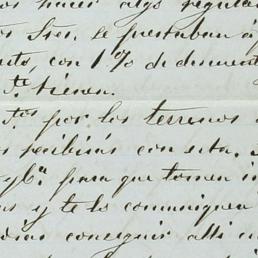 os hacer algo regular
os Sres. se prestaban á
con 1% de descuent
Te. tienen.
Tos. por los terrenos
recibirás con esta.
para que tomen in
y te lo comuniquen
conseguir alli